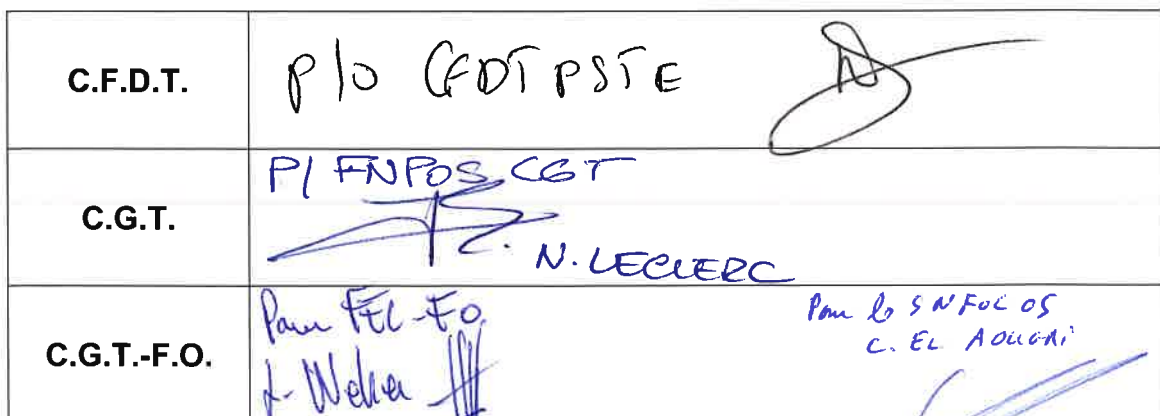 C.F.D.T.
P/o CFDT PSTE
C.G.T.
P/ FNPOS CGT
N. LECLERC
C.G.T.-F.O.
Pour FEC-FO
Pour le SNFOCOS
C. EL